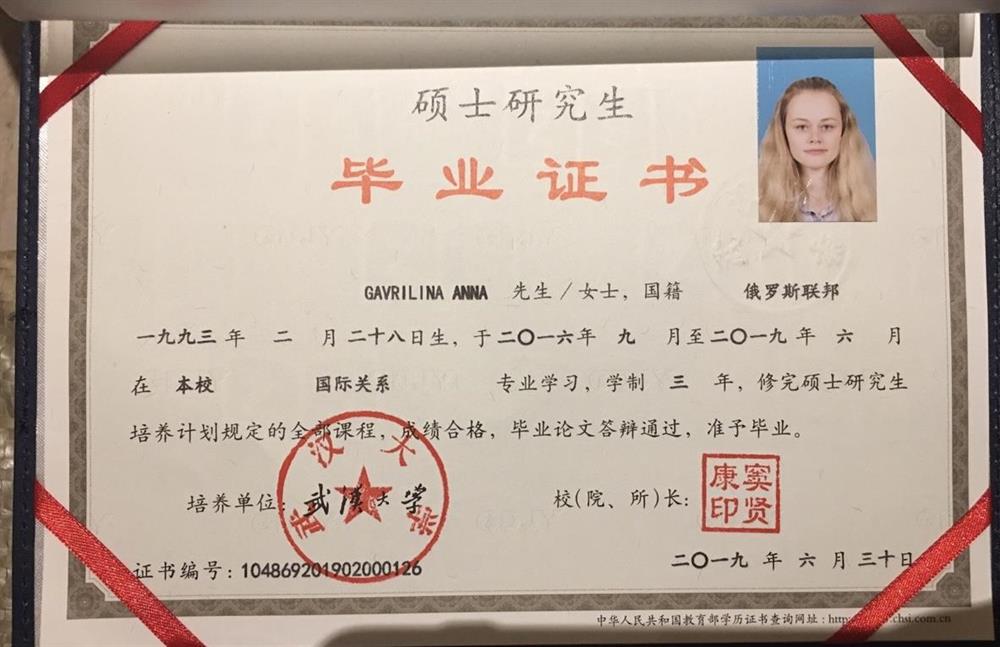 硕士研究生
毕业证书
GAVRILINA ANNA 先生/女士，国籍 俄罗斯联邦
一九九三 年 二 月 二十八日生，于二〇一六年 九 月至二〇一九 年 六 月
在 本校 国际关系 专业学习，学制 三 年，修完硕士研究生
培养计划规定的全部课程，成绩合格，毕业论文答辩通过，准予毕业。
培养单位：武漢大学
武汉大学
校(院、所)长：
窦贤康印
证书编号：104869201902000126
二〇一九 年 六 月 三十日
中华人民共和国教育部学历证书查询网址：http://.chsi.com.cn